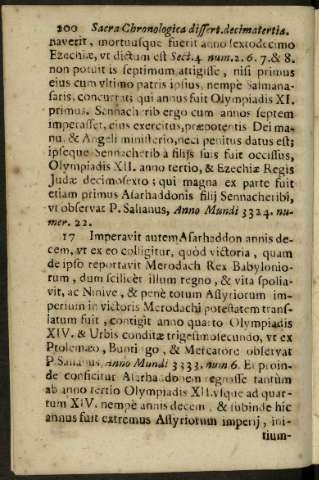 200 Sacra Chronologica dissert. decimatertia.
naverit, mortuusque fuerit anno sextodecimo
Ezechiæ, vt dictum est Sect. 4 num. 2. 6. 7. & 8.
non potuit is septimum attigisse, nisi primus
eius cum vltimo patris ipsius, nempè Salmana-
saris, concurrat: qui annus fuit Olympiadis XI.
primus. Sennacherib ergo cum annos septem
imperasset, eius exercitus, præpotentis Dei ma-
nu, & Angeli ministerio, neci penitus datus est;
ipseque Sennacherib à filijs suis fuit occisus,
Olympiadis XII. anno tertio, & Ezechiæ Regis
Judæ decimosexto; qui magna ex parte fuit
etiam primus Asarhaddonis filij Sennacheribi,
vt observat P. Salianus, Anno Mundi 3324. nu-
mer. 22.
17 Imperavit autem Asarhaddon annis de-
cem, vt ex eo colligitur, quòd victoria, quam
de ipso reportavit Merodach Rex Babylonio-
rum, dum scilicèt illum regno, & vita spolia-
vit, ac Ninive, & penè totum Assyriorum im-
perium in victoris Merodachi potestatem trans-
latum fuit, contigit anno quarto Olympiadis
XIV. & Urbis conditæ trigesimosecundo, vt ex
Ptolemæo, Buntingo, & Mercatore observat
P. Salianus, Anno Mundi 3333. num 6. Et proin-
de conficitur Asarhaddonem regnasse tantùm
ab anno tertio Olympiadis XII. vsque ad quar-
tum XIV. nempè annis decem, & subinde hic
annus fuit extremus Assyriorum imperij, ini-
tium-